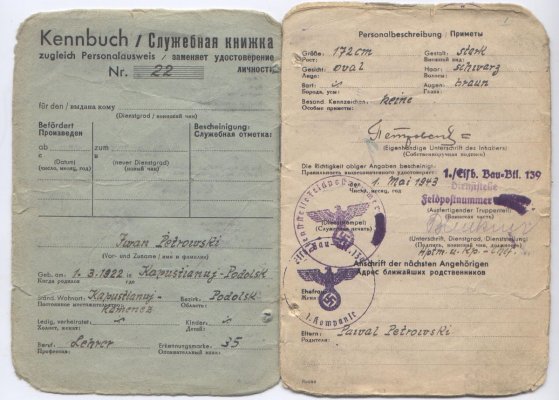 Kennbuch / Служебная книжка
zugleich Personalausweis / заменяет удостоверение
Nr. 22 личности
für den / выдана кому
(Dienstgrad / воинский чин)
Befördert
Произведен
Bescheinigung:
Служебная отметка:
ab zu
с в
(Datum) (neuer Dienstgrad)
(число, месяц, год) (новый чин)
Iwan Petrowski
(Vor- und Zuname / имя и фамилия)
Geb. am: 1. 3. 1922 in Kapustianuj-Podolsk
Когда родился где
Ständ. Wohnort: Kapustianuj- Bezirk: Podolsk
Постоянное местожительство: Kamenez Область:
Ledig, verheiratet Kinder:
Холост, женат: Детей:
Beruf: Lehrer Erkennungsmarke: 35
Профессия: Опознавательный знак:
Personalbeschreibung / Приметы
Größe: 172 cm Gestalt: stark
Рост: Внешний вид:
Gesicht: oval Haar: schwarz
Лицо: Волосы:
Bart: Augen: braun
Борода, усы: Глаза:
Besond. Kennzeichen: keine
Особые приметы:
(Eigenhändige Unterschrift des Inhabers)
(Собственноручная подпись)
Die Richtigkeit obiger Angaben bescheinigt:
Правильность вышеозначенного удостоверяет:
1./Eisb. Bau-Btl. 139
den 1. Mai 1943 Dienststelle
Число, месяц, год Feldpostnummer
(Dienststempel) (Ausfertigender Truppenteil)
(Служебная печать) (Воинская часть)
(Unterschrift, Dienstgrad, Dienststellung)
(Подпись, воинский чин, должность)
Hptm. u. Kp.-Chef
Anschrift der nächsten Angehörigen
Адрес ближайших родственников
Ehefrau:
Жена:
1. Kompanie
Eltern: Pawal Petrowski
Родители: